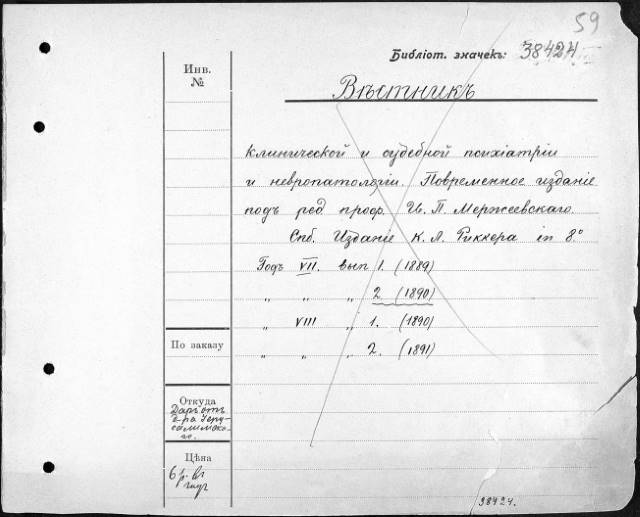 59
Библіот. значекъ: 38424
Инв.
№
Вѣстникъ
клинической и судебной психіатріи
и невропатологіи. Повременное изданіе
подъ ред. проф. И. П. Мержеевскаго.
Спб. Изданіе К. Л. Риккера in 8.°
Годъ VII. вып 1. (1889)
„ „ „ 2 (1890)
„ VIII „ 1. (1890)
„ „ „ 2. (1891)
По заказу
Откуда
Даръ отъ
д-ра Іеру-
салимска-
го.
Цѣна
6 р. въ
годъ
38424.